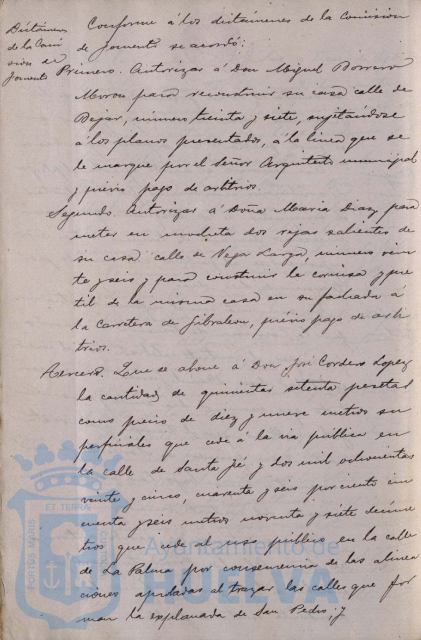 Dictámenes
de la Comi
sion de
Fomento
Conforme á los dictámenes de la Comision
de Fomento se acordó:
Primero. Autorizar á Don Miguel Borrero
Moron para reconstruir su casa calle de
Bejar, número treinta y siete, sujetándose
á los planos presentados, á la linea que se
le marque por el Señor Arquitecto municipal
y prévio pago de arbitrios.
Segundo. Autorizar á Doña Maria Diaz para
meter en mocheta dos rejas salientes de
su casa calle de Vega Larga, número vein
te y seis y para construir la cornisa y pre
til de la misma casa en su fachada á
la Carretera de Gibraleon, prévio pago de arbi
trios.
Tercero. Que se abone á Don José Cordero Lopez
la cantidad de quinientas setenta pesetas
como precio de diez y nueve metros su
perficiales que cede á la via pública en
la calle de Santa Fé y dos mil ochocientas
veinte y cinco, cuarenta y seis por ciento cin
cuenta y seis metros noventa y siete decíme
tros que cede al uso público en la calle
de La Palma por consecuencia de las alinea
ciones aprobadas al trazar las calles que for
man la explanada de San Pedro; y
PORTUS MARIS
ET TERRÆ
Ayuntamiento de
HUELVA